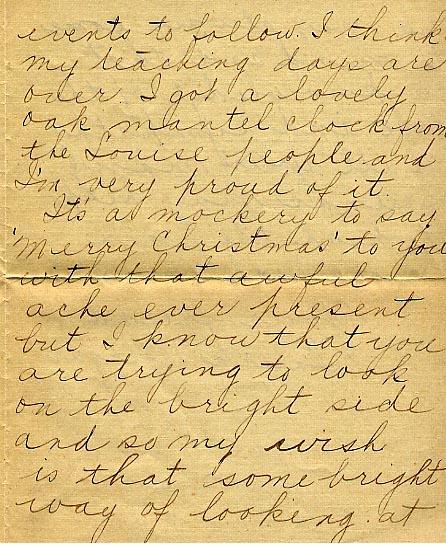 events to follow. I think
my teaching days are
over. I got a lovely
oak mantel clock from
the Louise people and
I'm very proud of it.
It's a mockery to say
'Merry Christmas' to you
with that awful
ache ever present
but I know that you
are trying to look
on the bright side
and so my wish
is that some bright
way of looking at